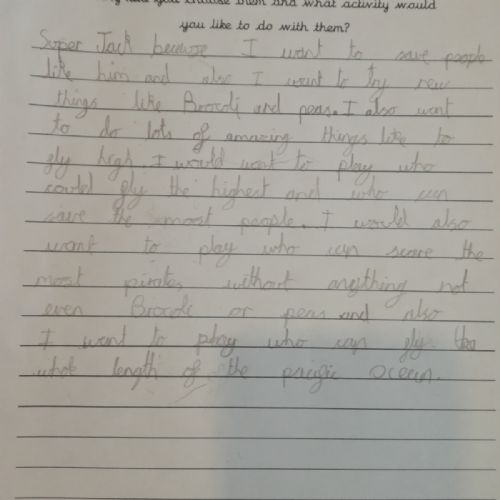 why did you choose them and what activity would
you like to do with them?
Super Jack because I want to save people
like him and also I want to try new
things like Brocoli and peas. I also want
to do lots of amazing things like to
fly high. I would want to play who
could fly the highest and who can
save the most people. I would also
want to play who can scare the
most pirates without anything not
even Brocoli or peas and also
I want to play who can fly the
whole length of the pacific Ocean.